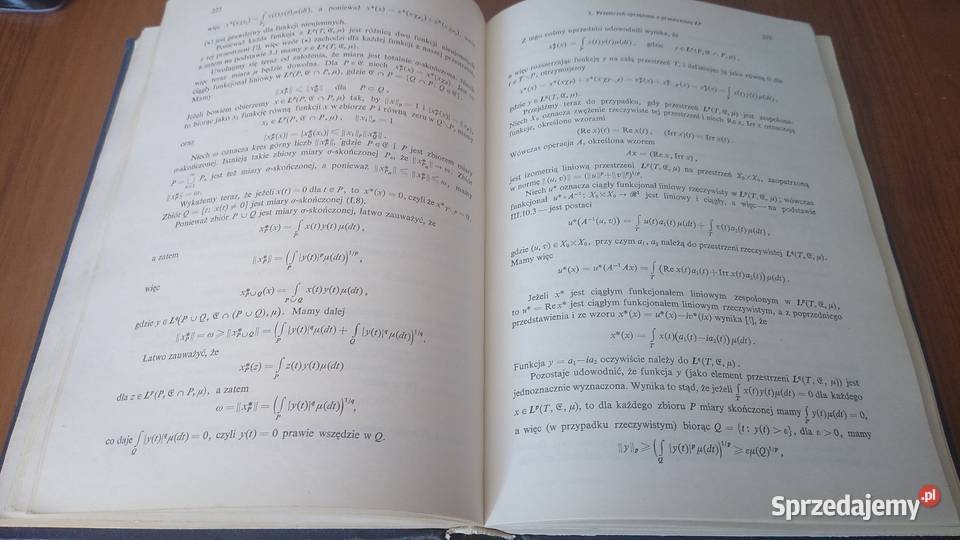 222
więc x*(xχ_P) = ∫ x(t)y(t)μ(dt), a ponieważ
(*) jest prawdziwy dla funkcji nieujemnych.
Ponieważ każda funkcja z Lᵖ(T, 𝔈, μ) jest różnicą dwu funkcji nieujemnych
z tej przestrzeni [!], więc wzór (*) zachodzi dla każdej funkcji z naszej przestrzeni,
a zatem na podstawie 3.1 mamy y ∈ L^q(T, 𝔈, μ).
Uwolnijmy się teraz od założenia, że miara jest totalnie σ-skończona. Niech
więc teraz miara μ będzie dowolna. Dla P ∈ 𝔈 niech x*_P(x) = x*(xχ_P). Jest to
ciągły funkcjonał liniowy w Lᵖ(P, 𝔈 ∩ P, μ), gdzie 𝔈 ∩ P = {Q ∩ P: Q ∈ 𝔈}.
Mamy
‖x*_P‖ ⩽ ‖x*_Q‖ dla P ⊂ Q.
Jeżeli bowiem obierzemy x ∈ Lᵖ(P, 𝔈 ∩ P, μ) tak, by ‖x‖_p = 1 i
to biorąc jako x₁ funkcję równą funkcji x w zbiorze P i równą zeru w Q∖P, mamy
x₁ ∈ Lᵖ(P, 𝔈 ∩ P, μ), ‖x₁‖_p = 1
oraz
|x*_P(x)| = |x*_Q(x₁)| ⩽ ‖x₁‖_p ‖x*_Q‖.
Niech ω oznacza kres górny liczb ‖x*_P‖, gdzie P ∈ 𝔈 i P jest zbiorem miary
σ-skończonej. Istnieją takie zbiory miary σ-skończonej Pₙ, że ‖x*_Pₙ‖ → ω. Zbiór
P = ⋃ Pₙ jest też miary σ-skończonej, a ponieważ ‖x*_Pₙ‖ ⩽ ‖x*_P‖ ⩽ ω, mamy
‖x*_P‖ = ω.
Wykażemy teraz, że jeżeli x(t) = 0 dla t ∈ P, to x*(x) = 0, czyli że x*_{T∖P} = 0.
Zbiór Q = {t: x(t) ≠ 0} jest miary σ-skończonej (I.8).
Ponieważ zbiór P ∪ Q jest miary σ-skończonej, łatwo zauważyć, że
x*_P(x) = ∫_P x(t)y(t)μ(dt),
a zatem
‖x*_P‖ = (∫_P |y(t)|^q μ(dt))^{1/q},
więc
x*_{P∪Q}(x) = ∫_{P∪Q} x(t)y(t)μ(dt),
gdzie y ∈ L^q(P ∪ Q, 𝔈 ∩ (P ∪ Q), μ). Mamy dalej
‖x*_P‖ = ω ⩾ ‖x*_{P∪Q}‖ = (∫_P |y(t)|^q μ(dt) + ∫_Q |y(t)|^q μ(dt))^{1/q}.
Łatwo zauważyć, że
x*_P(z) = ∫_P z(t)y(t)μ(dt)
dla z ∈ Lᵖ(P, 𝔈 ∩ P, μ), a zatem
ω = ‖x*_P‖ = (∫_P |y(t)|^q μ(dt))^{1/q},
co daje ∫_Q |y(t)|^q μ(dt) = 0, czyli y(t) = 0 prawie wszędzie w Q.
Przestrzeń sprzężona z przestrzenią Lᵖ
223
Z tego cośmy uprzednio udowodnili wynika, że
x*_P(x) = ∫_P x(t)y(t)μ(dt), gdzie y ∈ L^q(P, 𝔈 ∩ P, μ),
a więc rozszerzając funkcję y na całą przestrzeń T, i definiując ją jako równą 0 dla
t ∈ T∖P, otrzymujemy
gdzie y ∈ L^q(T, 𝔈, μ).
Przejdźmy teraz do przypadku, gdy przestrzeń Lᵖ(T, 𝔈, μ) jest zespolona.
Niech X₀ oznacza zwężenie rzeczywiste tej przestrzeni i niech Re x, Irr x oznaczają
funkcje, określone wzorami
(Re x)(t) = Re x(t), (Irr x)(t) = Irr x(t).
Wówczas operacja A, określona wzorem
Ax = (Re x, Irr x),
jest izometrią liniową przestrzeni Lᵖ(T, 𝔈, μ) na przestrzeń X₀×X₀, zaopatrzoną
w normę ‖(u, v)‖ = (‖u‖^p + ‖v‖^p)^{1/p}.
Niech u* oznacza ciągły funkcjonał liniowy rzeczywisty w Lᵖ(T, 𝔈, μ); wówczas
funkcjonał u*∘A⁻¹: X₀×X₀ → ℛ¹ jest liniowy i ciągły, a więc — na podstawie
III.10.3 — jest postaci
u*(A⁻¹(u, v)) = ∫_T u(t)a₁(t)μ(dt) + ∫_T v(t)a₂(t)μ(dt),
gdzie (u, v) ∈ X₀×X₀, przy czym a₁, a₂ należą do przestrzeni rzeczywistej L^q(T, 𝔈, μ).
Mamy więc
u*(x) = u*(A⁻¹Ax) = ∫_T (Re x(t)a₁(t) + Irr x(t)a₂(t))μ(dt).
Jeżeli x* jest ciągłym funkcjonałem liniowym zespolonym w Lᵖ(T, 𝔈, μ),
to u* = Re x* jest ciągłym funkcjonałem liniowym rzeczywistym, a z poprzedniego
przedstawienia i ze wzoru x*(x) = u*(x) − iu*(ix) wynika [!], że
x*(x) = ∫_T x(t)(a₁(t) − ia₂(t))μ(dt).
Funkcja y = a₁ − ia₂ oczywiście należy do L^q(T, 𝔈, μ).
Pozostaje udowodnić, że funkcja y (jako element przestrzeni L^q(T, 𝔈, μ)) jest
jednoznacznie wyznaczona. Wynika to stąd, że jeżeli ∫_T x(t)y(t)μ(dt) = 0 dla każdego
x ∈ Lᵖ(T, 𝔈, μ), to dla każdego zbioru P miary skończonej mamy ∫_P y(t)μ(dt) = 0,
a więc (w przypadku rzeczywistym) biorąc Q = {t: y(t) > ε}, dla ε > 0, mamy
‖y‖_p ⩾ (∫_Q |y(t)|^p μ(dt))^{1/p} ⩾ εμ(Q)^{1/p},
Sprzedajemy.pl